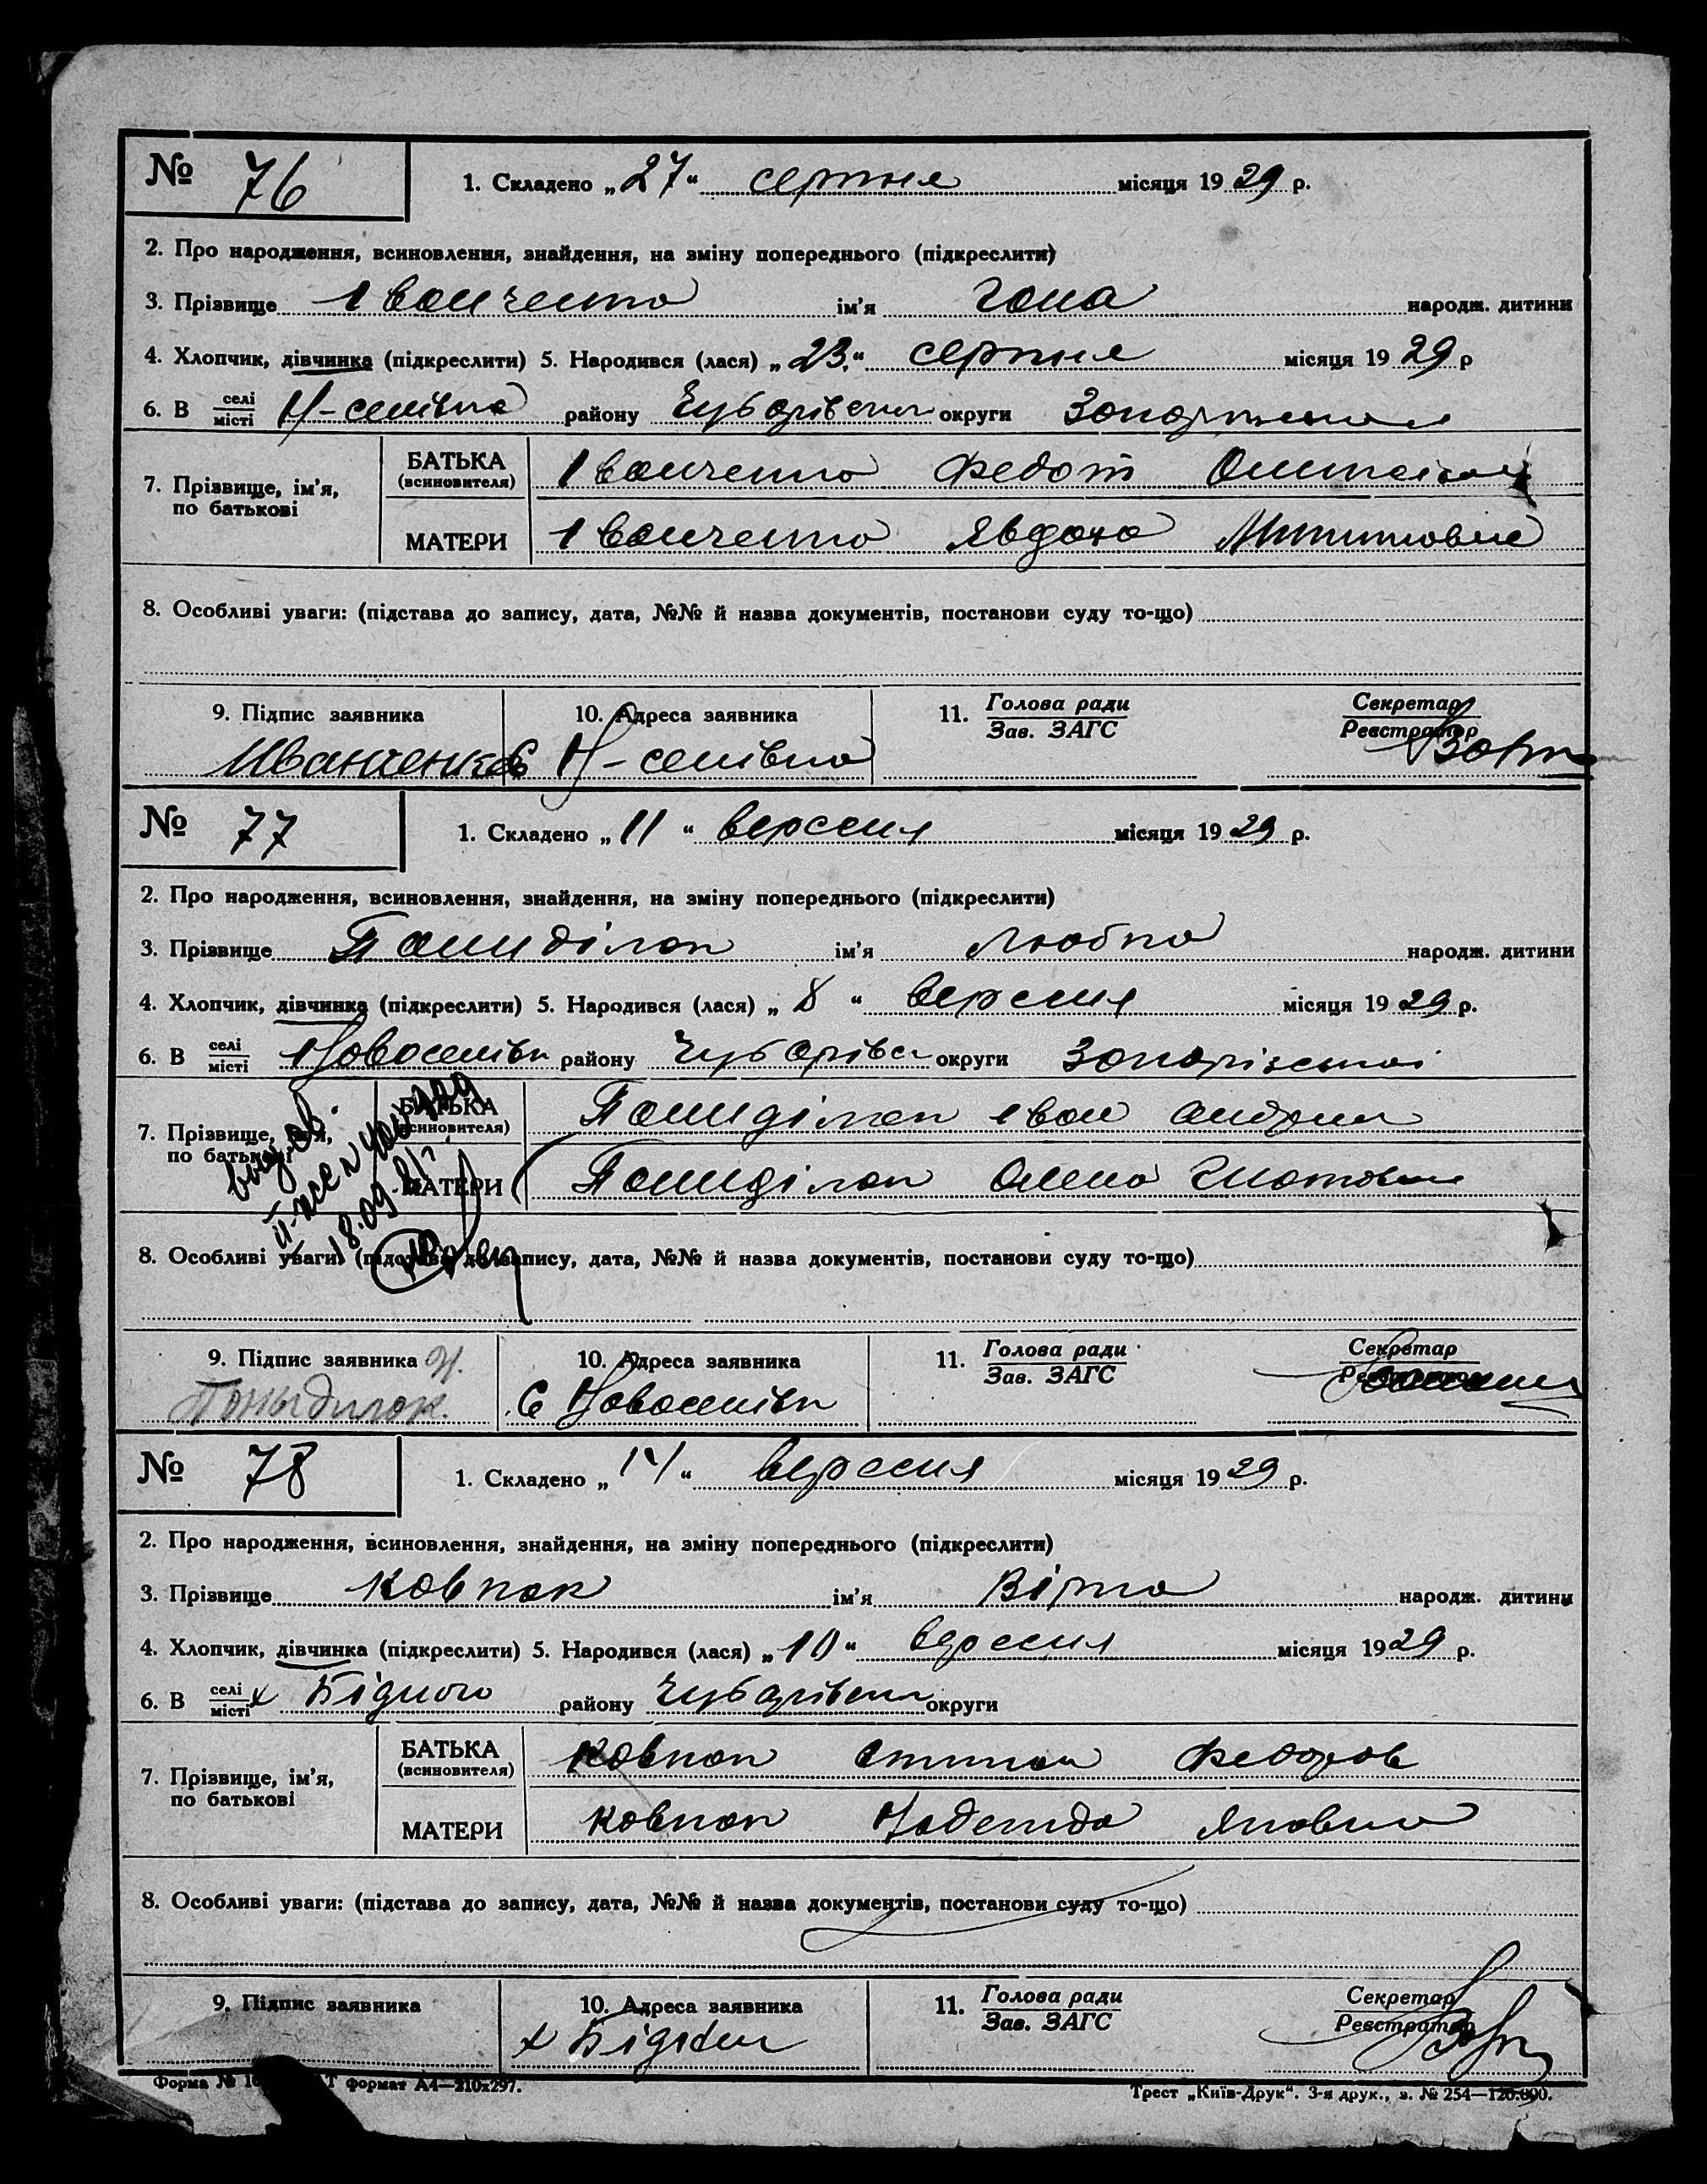 № 76 1. Складено „27“ серпня місяця 1929 р.
2. Про народження, всиновлення, знайдення, на зміну попереднього (підкреслити)
3. Прізвище Іванченко ім’я народж. дитини
4. Хлопчик, дівчинка (підкреслити) 5. Народився (лася) „23“ серпня місяця 1929 р
6. В селі місті Н-селівка району Чубарівськ округи
7. Прізвище, ім’я, по батькові
БАТЬКА (всиновителя) Іванченко Федот
МАТЕРИ Іванченко Явдоха
8. Особливі уваги: (підстава до запису, дата, №№ й назва документів, постанови суду то-що)
9. Підпис заявника 10. Адреса заявника 11. Голова ради Зав. ЗАГС Секретар Реєстратор
Иванченко С Н-селівка
№ 77 1. Складено „11“ вересня місяця 1929 р.
2. Про народження, всиновлення, знайдення, на зміну попереднього (підкреслити)
3. Прізвище Пониділок ім’я Любка народж. дитини
4. Хлопчик, дівчинка (підкреслити) 5. Народився (лася) „8“ вересня місяця 1929 р.
6. В селі місті Новоселівк району Чубарівс округи Запорізької
7. Прізвище, ім’я, по батькові
БАТЬКА (всиновителя) Пониділок Іван Андрии
МАТЕРИ Пониділок Олена
8. Особливі уваги: (підстава до запису, дата, №№ й назва документів, постанови суду то-що)
9. Підпис заявника 10. Адреса заявника 11. Голова ради Зав. ЗАГС Секретар Реєстратор
Поныдилок. С Новоселівк
№ 78 1. Складено „14“ вересня місяця 1929 р.
2. Про народження, всиновлення, знайдення, на зміну попереднього (підкреслити)
3. Прізвище Ковпак ім’я Вірка народж. дитини
4. Хлопчик, дівчинка (підкреслити) 5. Народився (лася) „10“ вересня місяця 1929 р.
6. В селі місті х Бідного району Чубарівськ округи
7. Прізвище, ім’я, по батькові
БАТЬКА (всиновителя) Ковпак Степан Федоров
МАТЕРИ Ковпак Надежда Яковна
8. Особливі уваги: (підстава до запису, дата, №№ й назва документів, постанови суду то-що)
9. Підпис заявника 10. Адреса заявника 11. Голова ради Зав. ЗАГС Секретар Реєстратор
Форма № формат А4—210х297. Трест „Київ-Друк“. 3-я друк., з. № 254—120.000.